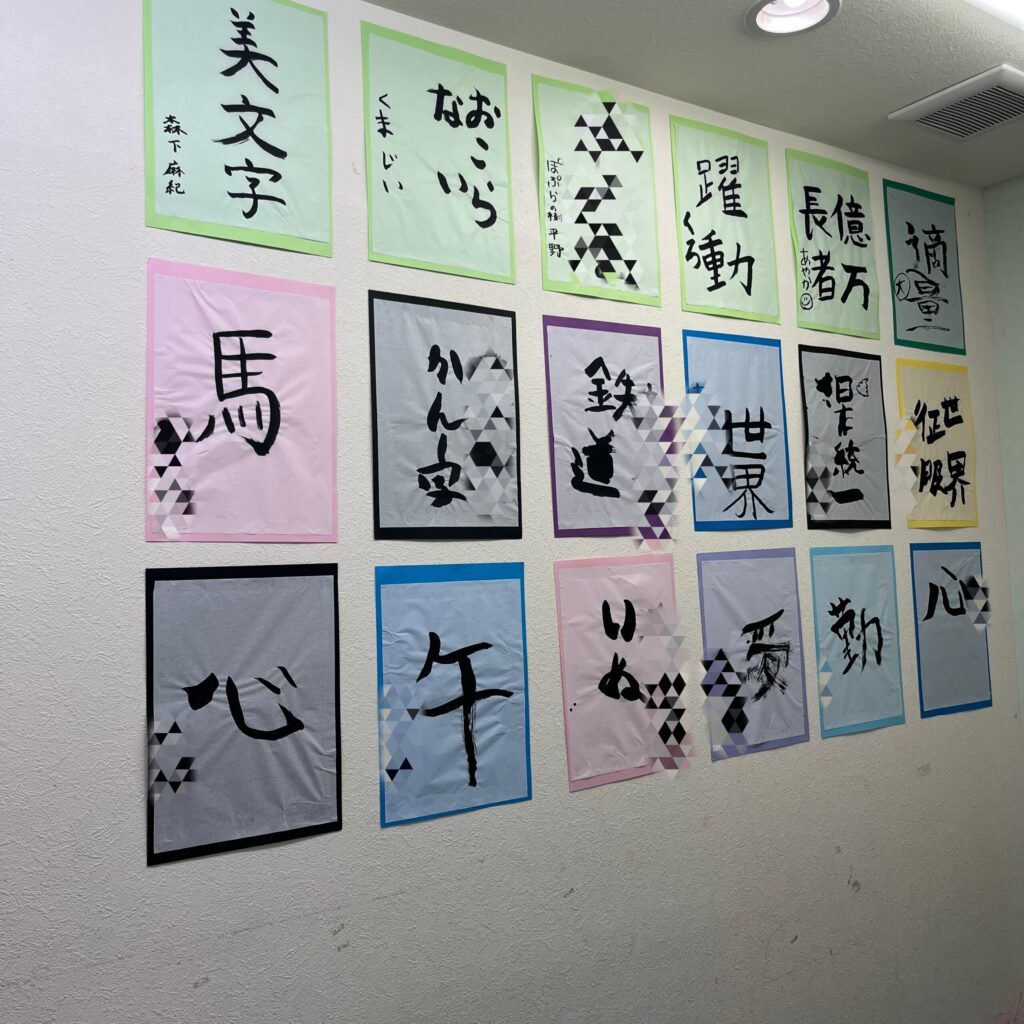 美文字
森下麻紀
おこらない
くまじい
ぽぷらの樹 平野
躍動
くろ
億万長者
あやか
馬
かん字
鉄道
世界
統一
世界征服
心
午
いぬ
愛
勤
心